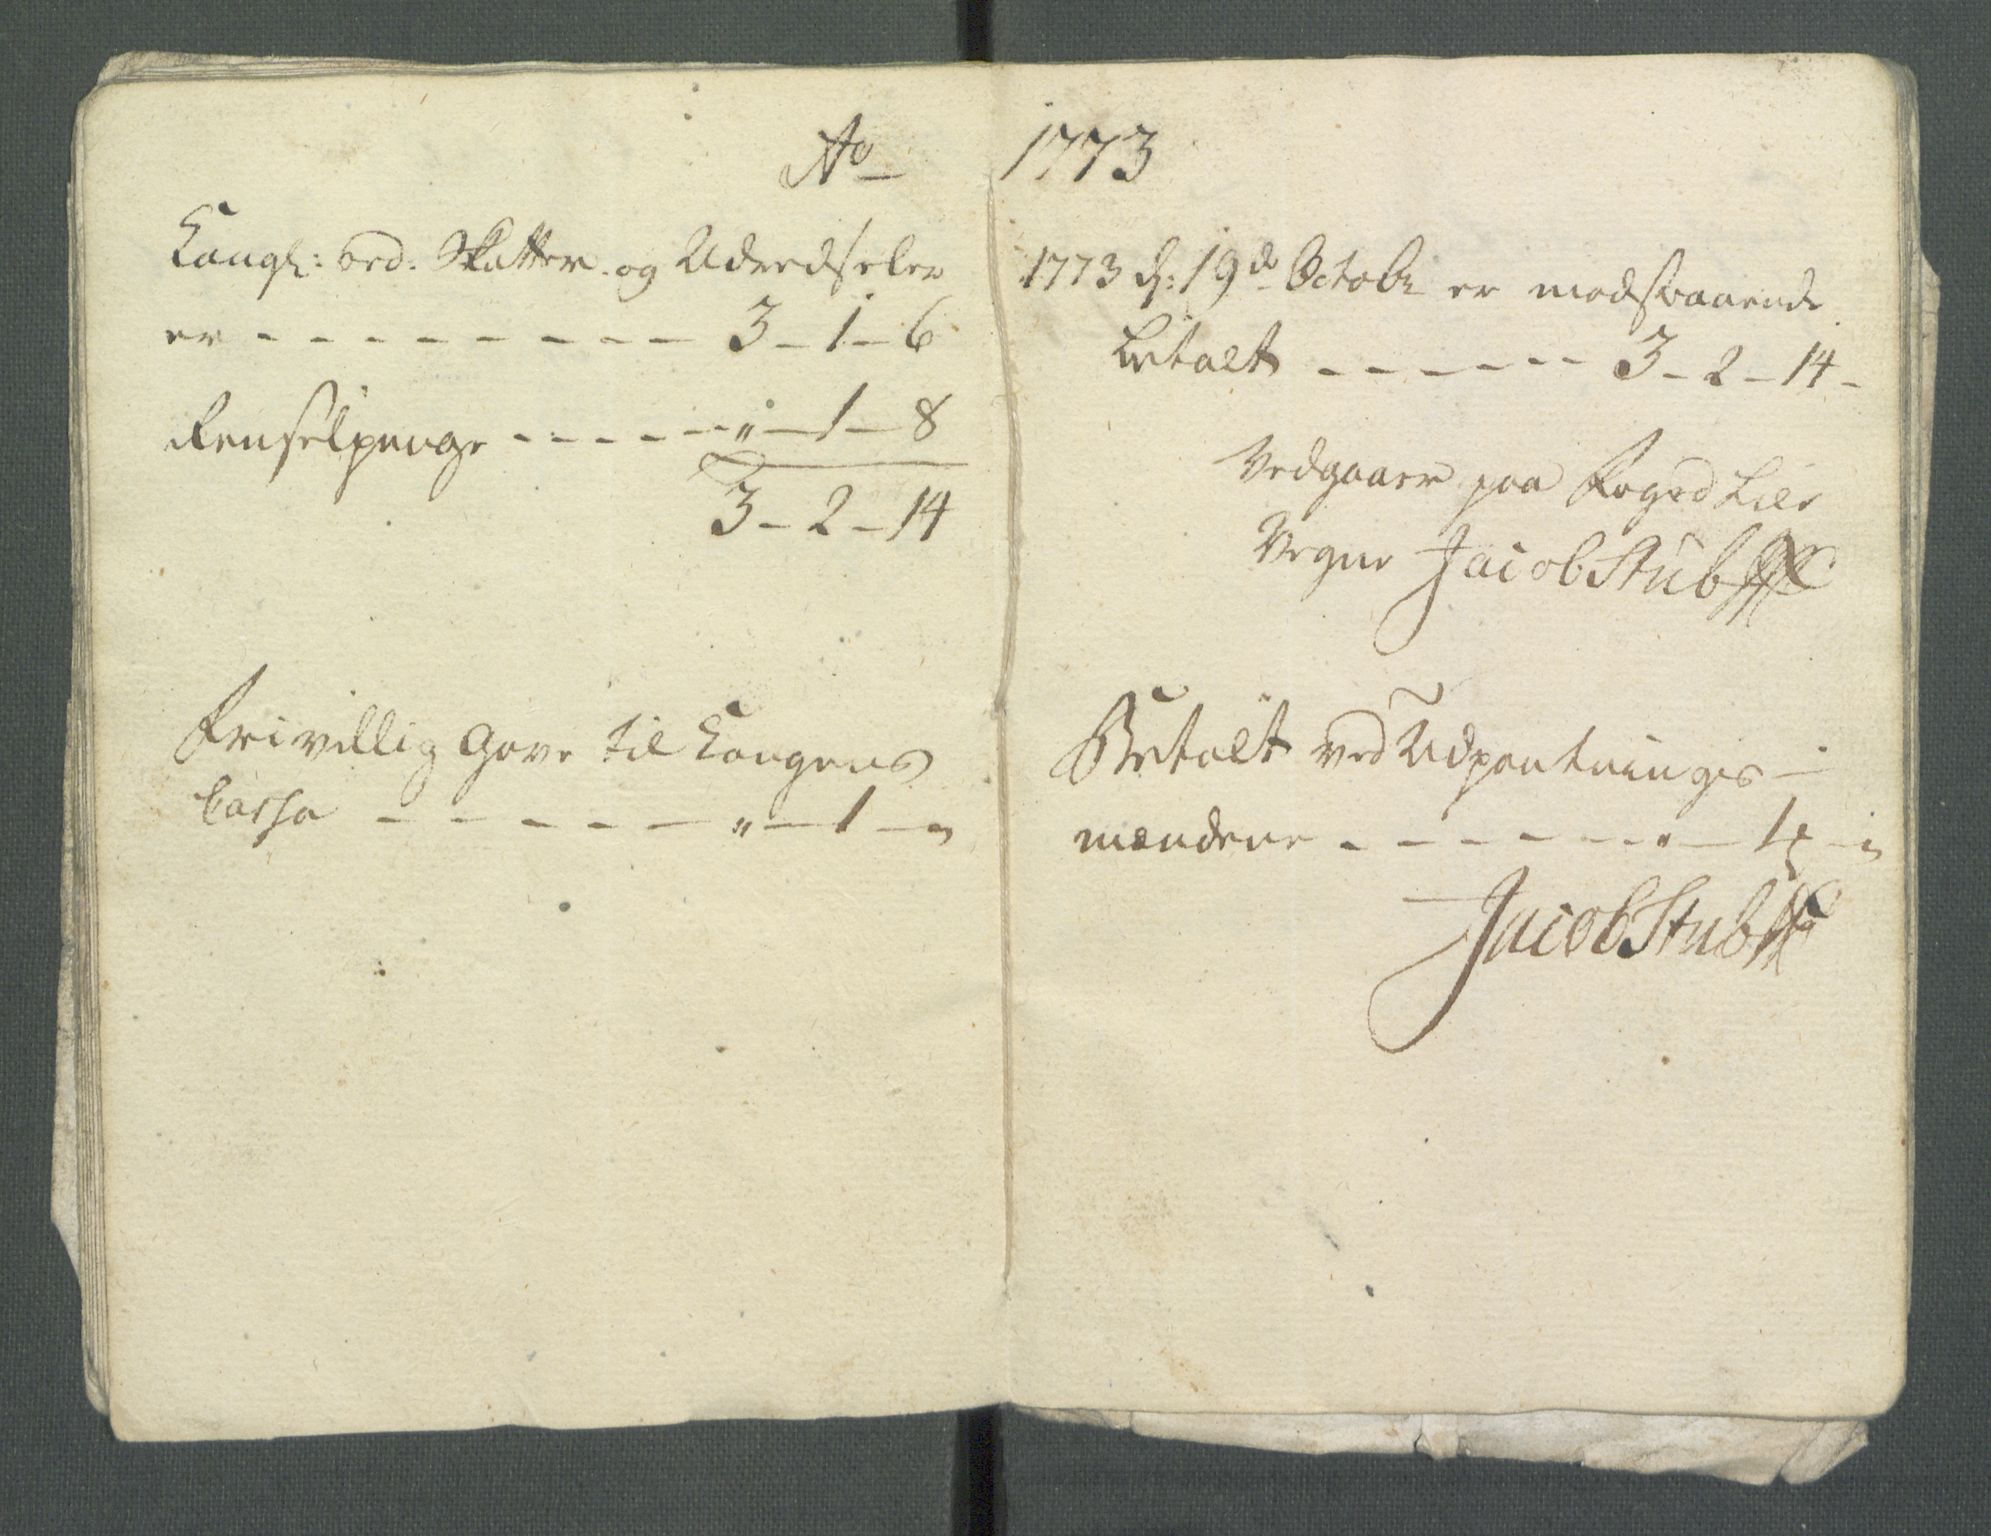 Ao 1773
Kongl: ord. Skatter og Udredseler
er - - - - - - - - - 3 - 1 - 6
Renselpenge - - - - - " - 1 - 8
3 - 2 - 14
Frivillig Gave til Kongens
Cassa - - - - - - " - 1 - "
1773 d: 19de Octobr er modstaaende
betalt - - - - - - 3 - 2 - 14 -
Vedgaaer paa Foged Lies
Vegne Jacob Stub
Betalt ved Udpantnings-
mændene - - - - - - " - 1 - "
Jacob Stub